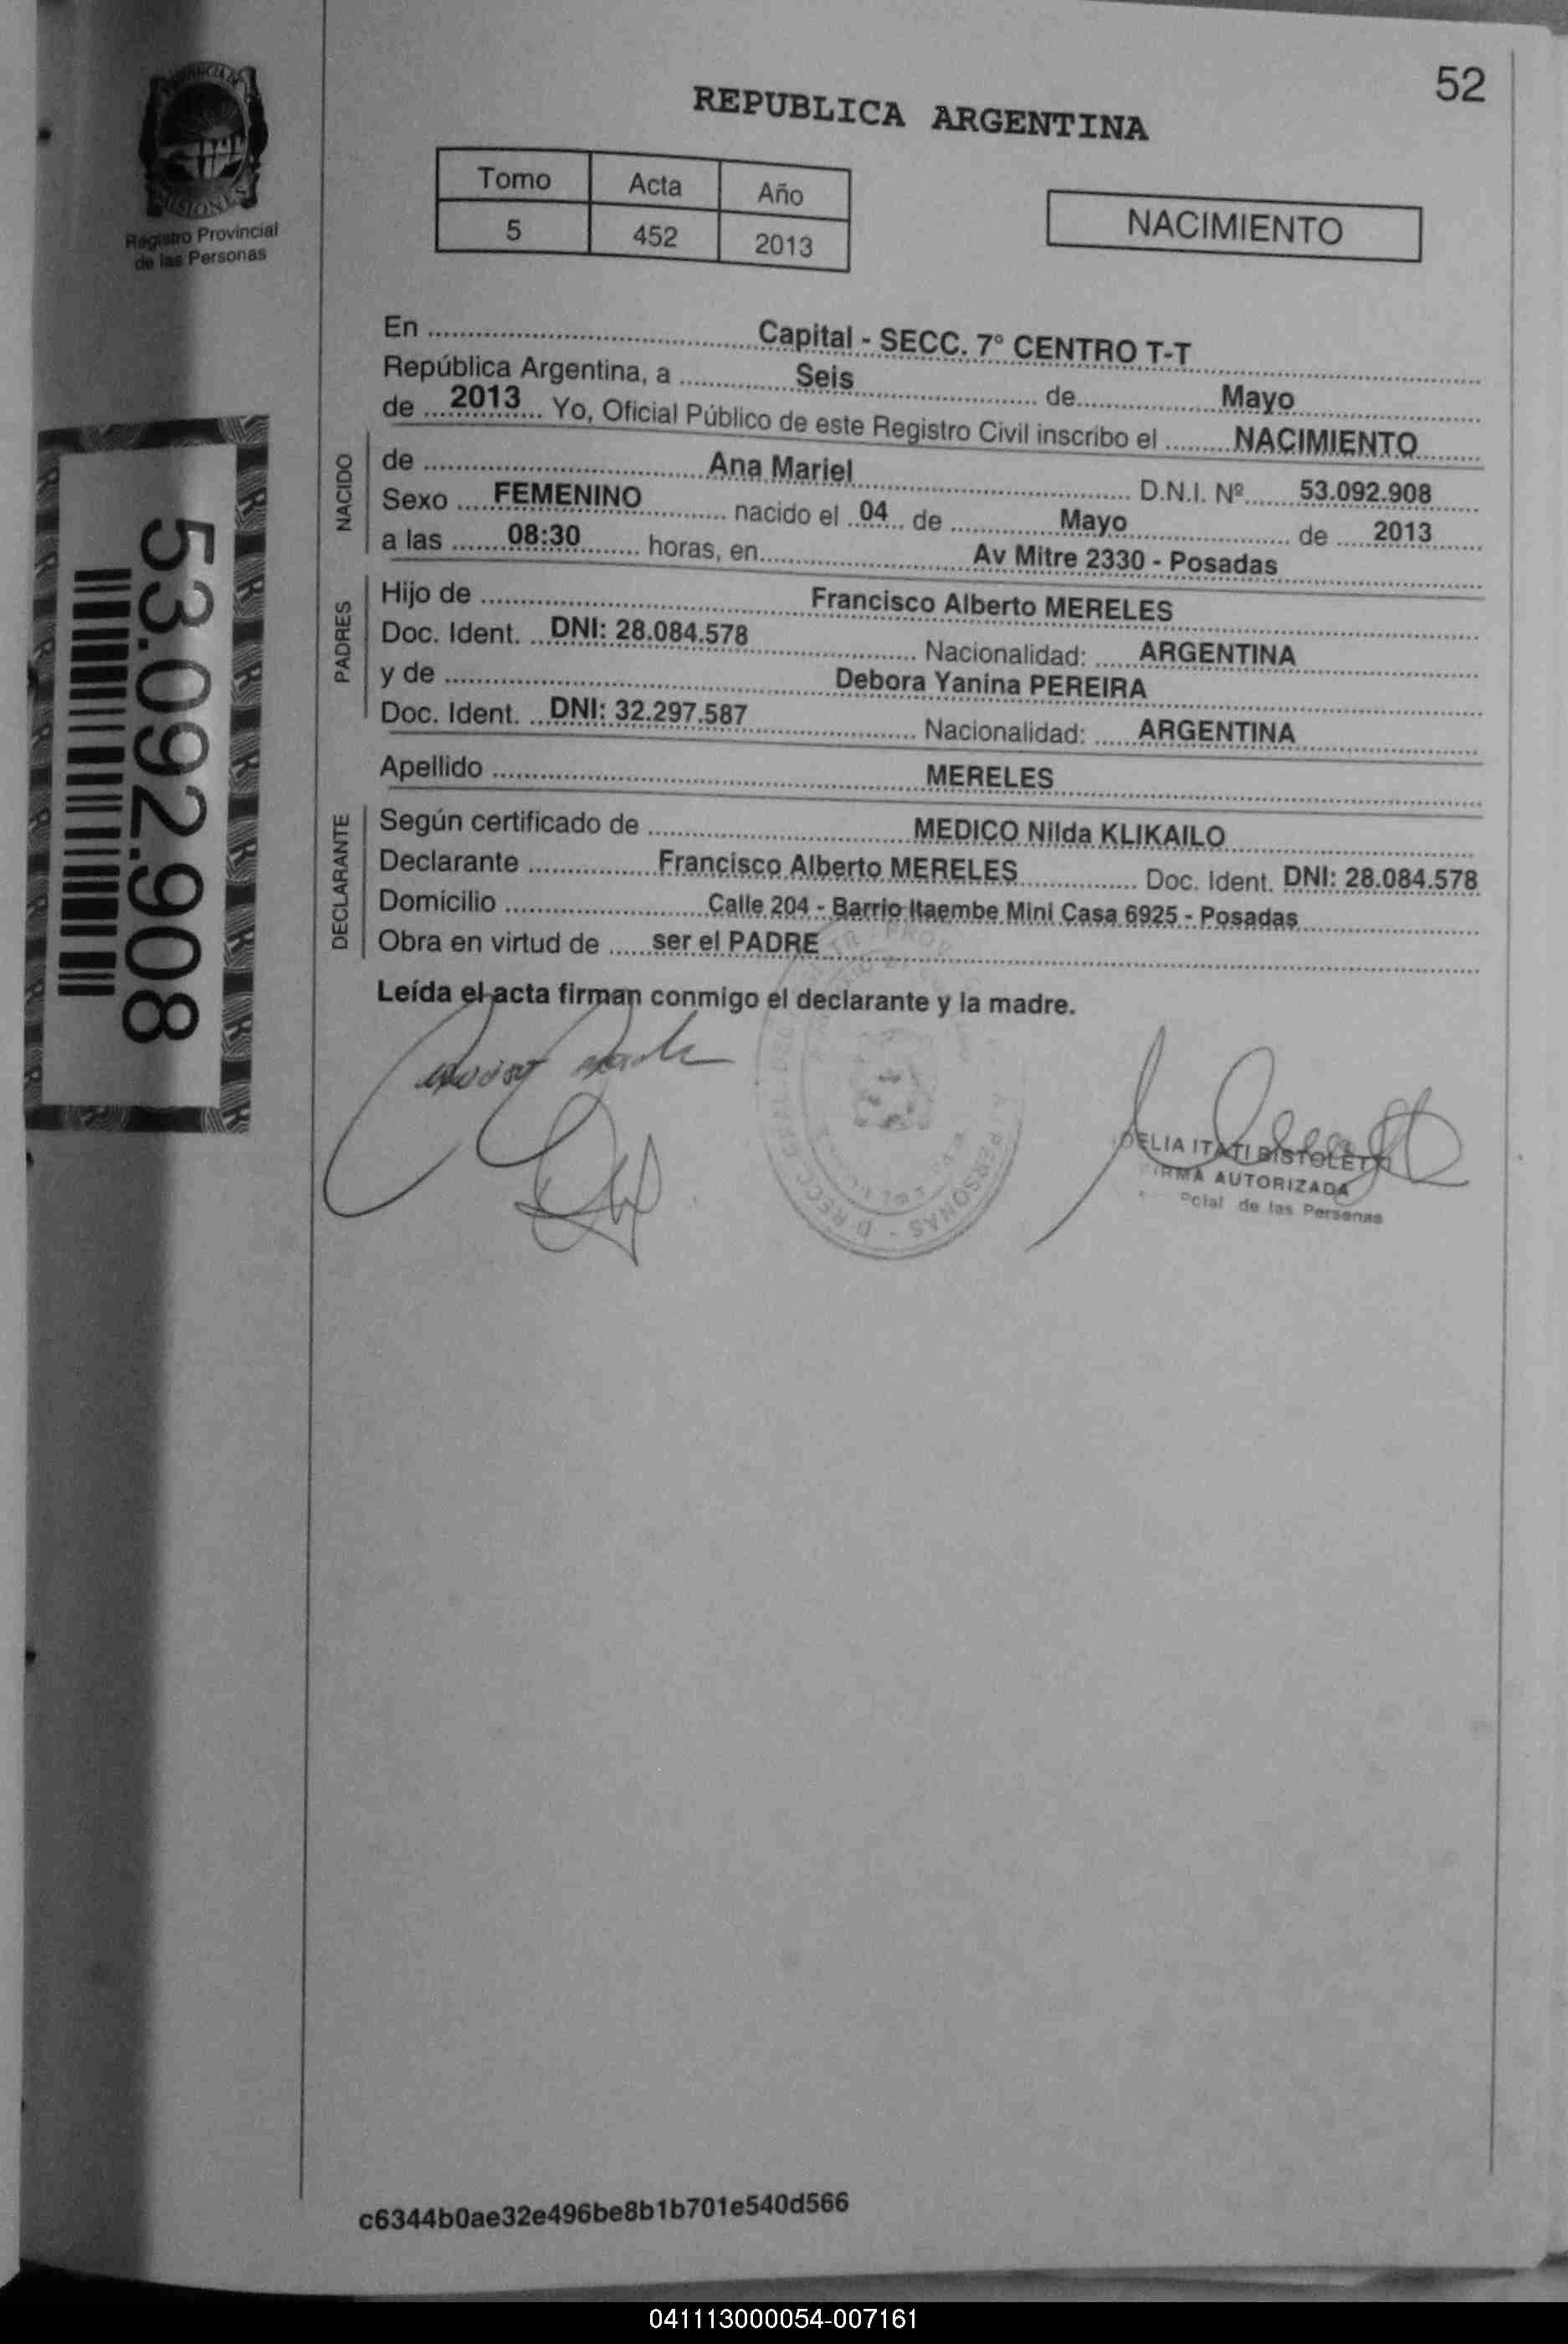 52
REPUBLICA ARGENTINA
Registro Provincial
de las Personas
Tomo Acta Año
5 452 2013
NACIMIENTO
53.092.908
En Capital - SECC. 7° CENTRO T-T
República Argentina, a Seis de Mayo
de 2013 Yo, Oficial Público de este Registro Civil inscribo el NACIMIENTO
NACIDO
de Ana Mariel D.N.I. Nº 53.092.908
Sexo FEMENINO nacido el 04 de Mayo de 2013
a las 08:30 horas, en Av Mitre 2330 - Posadas
PADRES
Hijo de Francisco Alberto MERELES
Doc. Ident. DNI: 28.084.578 Nacionalidad: ARGENTINA
y de Debora Yanina PEREIRA
Doc. Ident. DNI: 32.297.587 Nacionalidad: ARGENTINA
Apellido MERELES
DECLARANTE
Según certificado de MEDICO Nilda KLIKAILO
Declarante Francisco Alberto MERELES Doc. Ident. DNI: 28.084.578
Domicilio Calle 204 - Barrio Itaembe Mini Casa 6925 - Posadas
Obra en virtud de ser el PADRE
Leída el acta firman conmigo el declarante y la madre.
ITATI BISTOLETTI
AUTORIZADA
de las Personas
c6344b0ae32e496be8b1b701e540d566
041113000054-007161